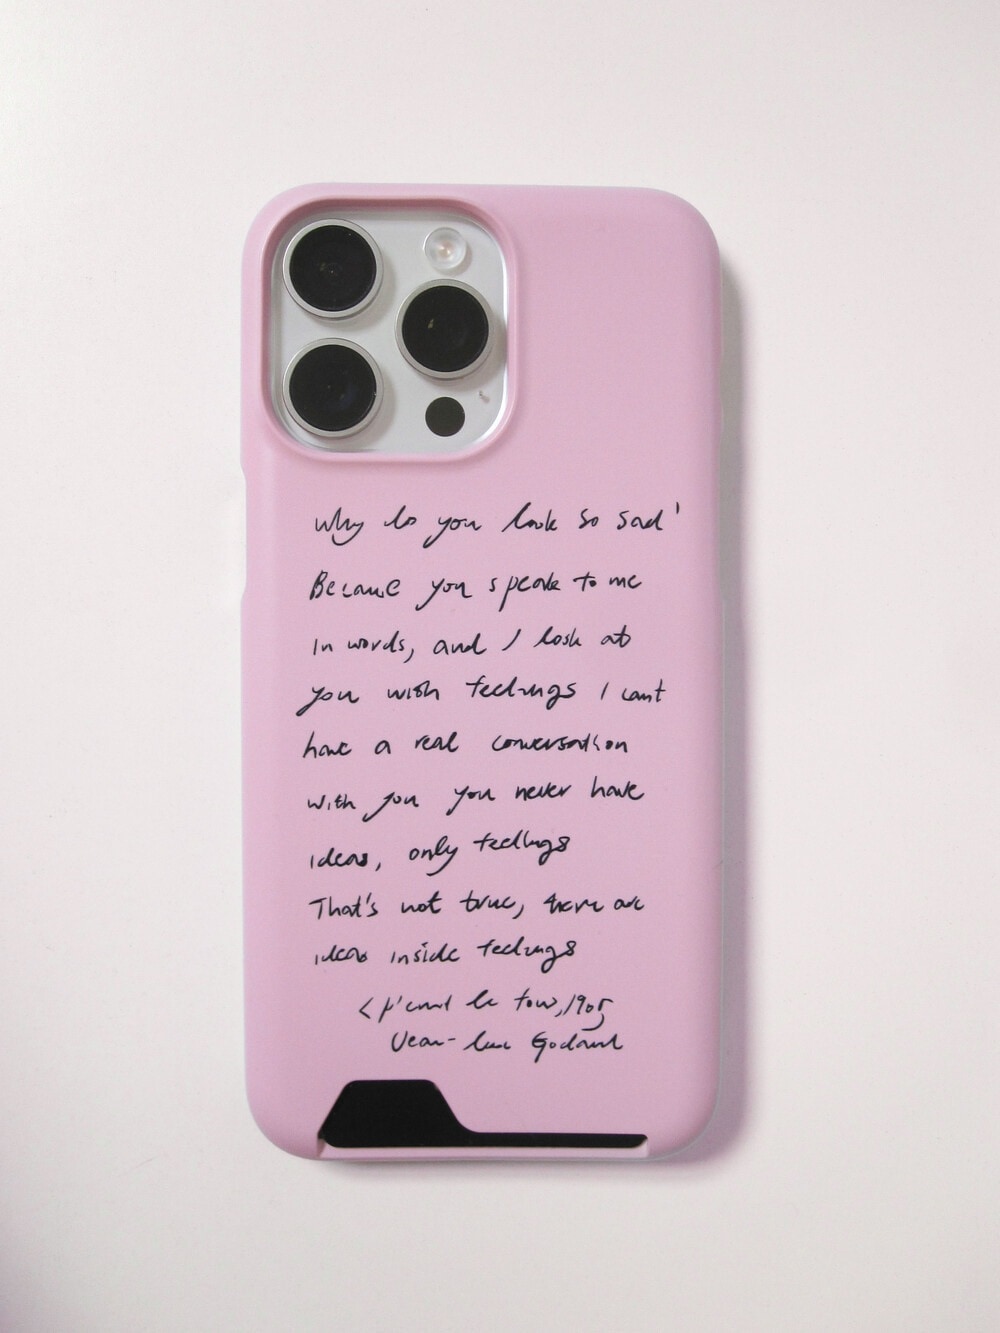 Why do you look so sad'
Because you speak to me
in words, and I look at
you with feelings I cant
have a real conversation
with you you never have
ideas, only feelings
That's not true, there are
ideas inside feelings
< le fou, 1965
Jean-Luc Godard